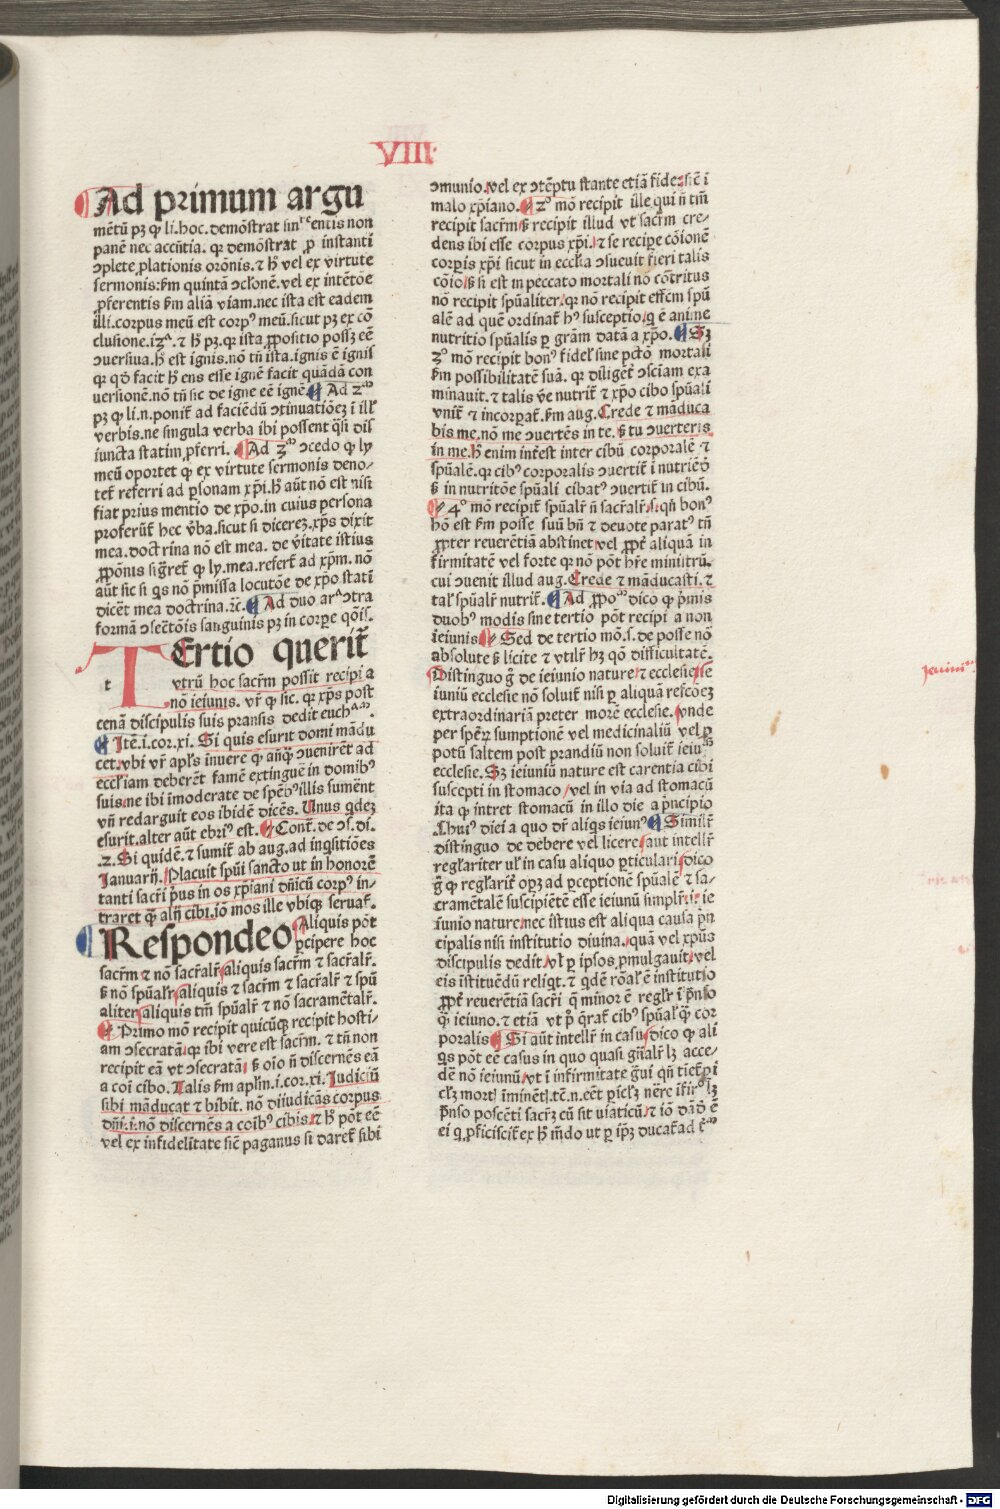 VIII
Ad primum argu
mētū pꝫ ꝙ li.hoc.demōstrat
panē nec accn̄tia. qꝛ demōstrat ꝓ instanti
ɔplete ꝓlationis orōnis. ⁊ hͦ vel ex virtute
sermonis: s̄m quintā ɔclonē. vel ex intētōe
ꝓferentis s̄m aliā viam. nec ista est eadem
illi. corpus meū est corpꝰ meū. sicut pꝫ ex cō
clusione. ⁊ hͦ pꝫ. qꝛ ista ꝓpositio possꝫ eē
ɔuersiua. hͦ est ignis. nō tn̄ ista. ignis ē ignis
qꝛ qd̄ facit hͦ ens esse ignē facit quādā con
uersionē. nō tn̄ sic de igne eē ignē. Ad 2ᵐ
pꝫ ꝙ li.n.ponit̄ ad faciēdū ɔtinuatiōeꝫ ī ill̄
verbis. ne singula verba ibi possent q̄si dis
iuncta statim ꝓferri. Ad 3ᵐ ɔcedo ꝙ ly
meū oportet ꝙ ex virtute sermonis deno-
tet̄ referri ad ꝑsonam xp̄i. hͦ aūt nō est nisi
fiat prius mentio de xp̄o. in cuius persona
proferūt̄ hec v̄ba. sicut si dicereꝫ. xp̄s dixit
mea. doctrina nō est mea. de v̄itate istius
ꝓpōnis siḡret̄ ꝙ ly. mea. refert̄ ad xp̄m. nō
aūt sic si qͥs nō p̄missa locutōe de xp̄o statī
dicēt mea doctrina. ⁊c. Ad duo arᵃ ɔtra
formā ɔsectōis sanguinis pꝫ in corꝑe qōis.
TErtio querit̄
t vtrū hoc sacr̄m possit recipi a
nō ieiunis. vr̄ ꝙ sic. qꝛ xp̄s post
cenā discipulis suis pransis dedit
Itē.i.cor.xi. Si quis esurit domi mādu
cet. vbi vr̄ apl̄s inuere ꝙ anq̄ꝫ ɔuenirēt ad
eccl̄iam deberēt famē extinguē in domibꝰ
suis. ne ibi īmoderate de spēbꝰ illis sumēnt
vn̄ redarguit eos ibidē dicēs. Unus qͥdeꝫ
esurit. alter aūt ebriꝰ est. Cont̄. de ɔs. di.
2. Si quidē. ⁊ sumit̄ ab aug. ad inqͥsitiōes
Januarij. Placuit spūi sancto ut in honorē
tanti sacr̄i pͥus in os xp̄iani dn̄icū corpꝰ in-
traret qͣꝫ alij cibi. iō mos ille vbiqꝫ seruat̄.
Respondeo Aliquis pōt
ꝑcipere hoc
sacr̄m ⁊ nō sacr̄alr̄ aliquis sacr̄m ⁊ sacr̄alr̄.
sꝫ nō spūalr̄ aliquis ⁊ sacr̄m ⁊ sacr̄alr̄ ⁊ spū
aliter aliquis tm̄ spūalr̄ ⁊ nō sacramētalr̄.
Primo mō recipit quicūqꝫ recipit hosti-
am ɔsecratā. qꝛ ibi vere est sacr̄m. ⁊ tn̄ non
recipit eā vt ɔsecratā. sꝫ oīo n̄ discernēs eā
a coī cibo. Talis s̄m apl̄m.i.cor.xi. Judiciū
sibi māducat ⁊ bibit. nō diiudicās corpus
dn̄i.i.nō discernēs a coibꝰ cibis. ⁊ hͦ pōt eē
vel ex infidelitate sic̄ paganus si daret̄ sibi
ɔmunio. vel ex ɔtēptu stante etiā fide. sic̄ ī
malo xp̄iano. 2ͦ mō recipit ille qui n̄ tm̄
recipit sacr̄m sꝫ recipit illud vt sacr̄m cre-
dens ibi esse corpus xp̄i. ⁊ se recipe cōionē
corꝑis xp̄i sicut in eccl̄ia ɔsueuit fieri talis
cōio. sꝫ si est in peccato mortali nō cōtritus
nō recipit spūaliter. qꝛ nō recipit effcm̄ spū
alē ad quē ordinat̄ hꝰ susceptio. q̄ ē anime
nutritio spūalis ꝑ gr̄am datā a xp̄o. Sꝫ
3ͦ mō recipit bonꝰ fidel̄ sine pctō mortali
s̄m possibilitatē suā. qꝛ diligēt̄ ɔsciam exa
minauit. ⁊ talis v̄e nutrit̄ ⁊ xp̄o cibo spūali
vnit̄ ⁊ incorꝑat̄. s̄m aug. Crede ⁊ māduca
bis me. nō me ɔuertēs in te. sꝫ tu ɔuerteris
in me. hͦ enim int̄est inter cibū corporalē ⁊
spūalē. qꝛ cibꝰ corporalis ɔuertit̄ ī nutriēdū
sꝫ in nutritōe spūali cibatꝰ ɔuertit̄ in cibū.
4ͦ mō recipit̄ spūalr̄ n̄ sacr̄alr̄. s. qn̄ bonꝰ
hō est s̄m posse suū bn̄ ⁊ deuote paratꝰ tn̄
ꝓpter reuerētiā abstinet. vel ꝓpt̄ aliquā in
firmitatē vel forte qꝛ nō pōt hr̄e ministrū.
cui ɔuenit illud aug. Crede ⁊ māducasti. ⁊
tal̄ spūalr̄ nutrit̄. Ad ꝓpoᵐ dico ꝙ p̄mis
duobꝰ modis sine tertio pōt recipi a non
ieiunis. Sed de tertio mō. s. de posse nō
absolute sꝫ licite ⁊ vtilr̄ hꝫ qō difficultatē.
Distinguo ḡ de ieiunio nature. ⁊ ecclesie. Je
iuniū ecclesie nō soluit̄ nisi ꝑ aliquā refcōeꝫ
extraordinariā preter morē ecclesie. vnde
per spērꝫ sumptionē vel medicinaliū vel ꝑ
potū saltem post prandiū non soluit̄ ieiuᵐ
ecclesie. Sꝫ ieiuniū nature est carentia cibi
suscepti in stomaco vel in via ad stomacū
ita ꝙ intret stomacū in illo die a pͥncipio
.huiꝰ diei a quo dr̄ aliqͥs ieiunꝰ. Similr̄
distinguo de debere vel licere. aut intelligr̄
regl̄ariter vl̄ in casu aliquo ꝑticulari. dico
ḡ ꝙ regl̄arit̄ opꝫ ad ꝑceptionē spūalē ⁊ sa-
cramētalē suscipiētē esse ieiunū simplr̄. ie
iunio nature. nec istius est aliqua causa pͥn
cipalis nisi institutio diuina. quā vel xp̄us
discipulis dedit. vl̄ ꝑ ipsos ꝓmulgauit. vel
eis īstituēdū reliqͥt. ⁊ qͥdē rōal̄ ē institutio
ꝓpt̄ reuerētiā sacr̄i
ieiuno. ⁊ etiā vt pͥ q̄rat̄ cibꝰ spūal̄ qͣꝫ cor
poralis. Si aūt intellr̄ in casu. dico ꝙ ali
qͥs pōt eē casus in quo quasi gn̄alr̄ lꝫ acce-
dē nō ieiunū. vt ī infirmitate
p̄nso poscēti sacr̄ꝫ cū sit viaticū. ⁊ iō
ei q̄ ꝓficiscit̄ ex hͦ mūdo ut ꝑ ip̄ꝫ ducat̄ ad
Digitalisierung gefördert durch die Deutsche Forschungsgemeinschaft - DFG